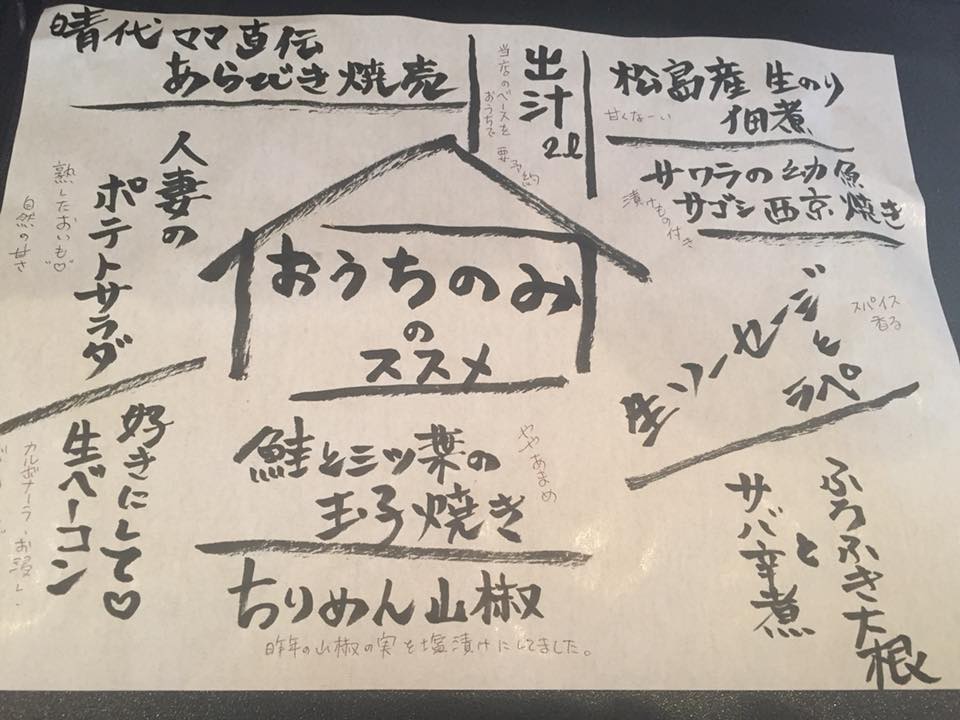 晴代ママ直伝
あらびき焼売
出汁
2ℓ
当店のベースを
おうちで
要予約
松島産 生のり
佃煮
甘くなーい
サワラの幼魚
サゴシ西京焼き
漬けもの付き
人妻の
ポテトサラダ
熟したおいも♡
自然の甘さ
おうちのみ
の
ススメ
生ソーセージと
ラペ
スパイス
香る
好きにして♡
生ベーコン
カルボナーラ、お浸し、
鮭と三ツ葉の
玉子焼き
ややあまめ
ちりめん山椒
昨年の山椒の実を塩漬けにしてました。
ふろふき大根
と
サバ辛煮